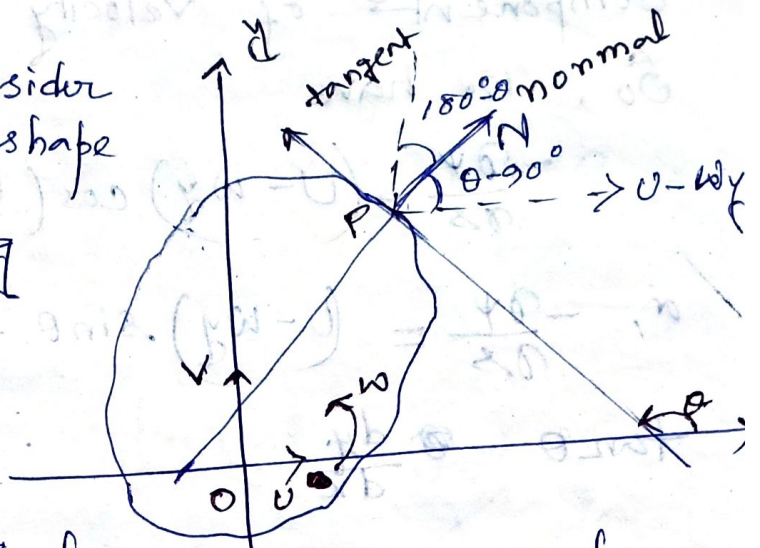 y
sider
shape
tangent
180°-θ
nonmal
N
θ-90°
→ U-wy
P
V
w
θ
O
U